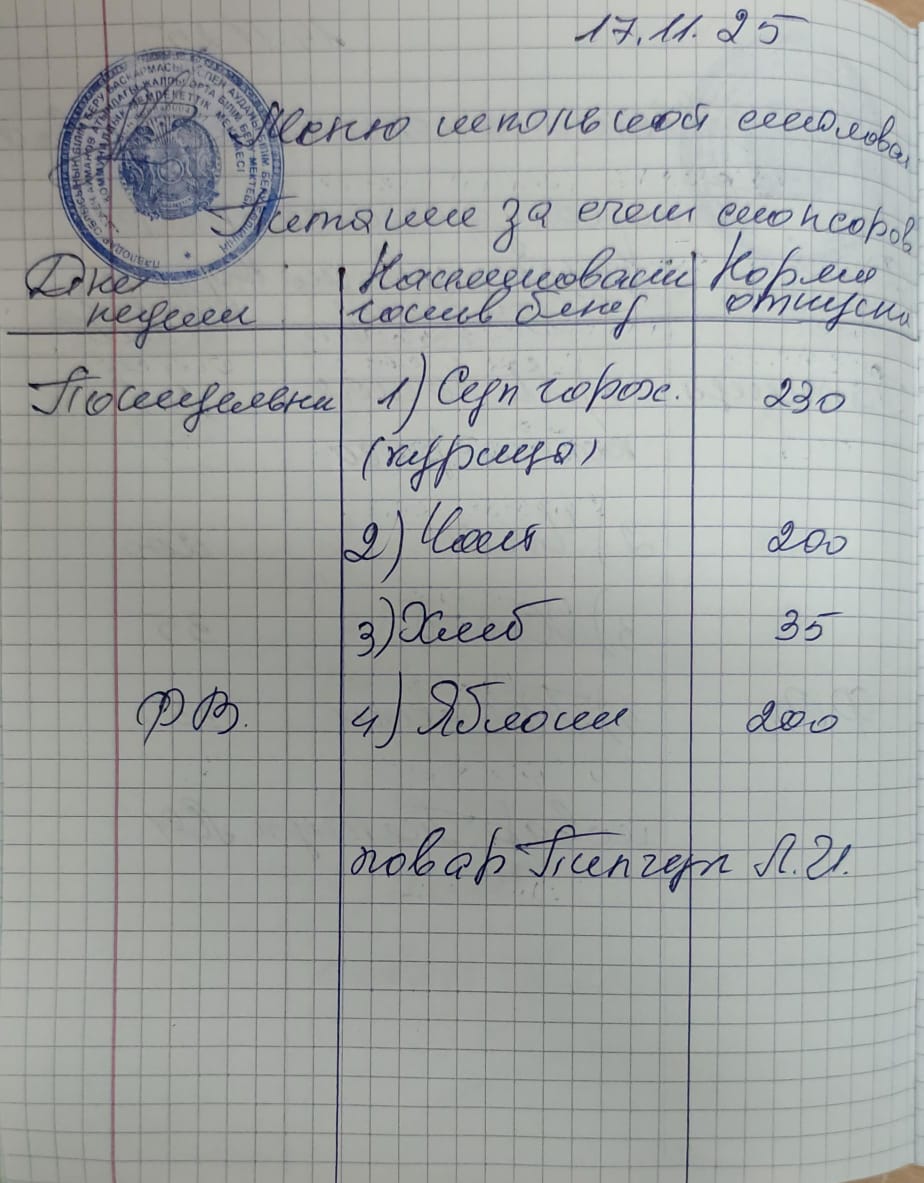 17.11.25
Меню школьной столовой
Питание за счет спонсоров
Дни недели
Наименование состав блюд
Норма отпуска
Понедельник
1) Суп горох.
230
(курица)
2) Чай
200
3) Хлеб
35
РВ.
4) Яблоки
200
повар Л.И.